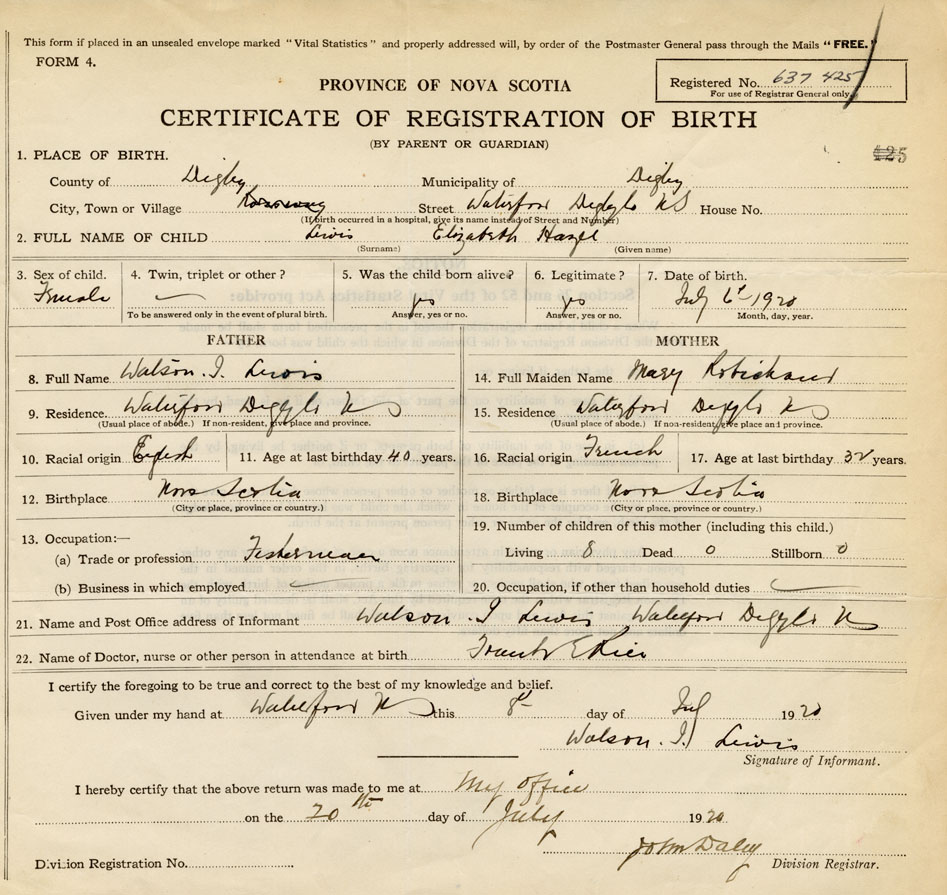 This form if placed in an unsealed envelope marked "Vital Statistics" and properly addressed will, by order of the Postmaster General pass through the Mails "FREE."
FORM 4.
PROVINCE OF NOVA SCOTIA
Registered No. 637 425
For use of Registrar General only.
CERTIFICATE OF REGISTRATION OF BIRTH
(BY PARENT OR GUARDIAN)
1. PLACE OF BIRTH.
County of Digby Municipality of Digby
City, Town or Village Street Waterford Digby Co NS House No.
(If birth occurred in a hospital, give its name instead of Street and Number)
2. FULL NAME OF CHILD Lewis Elizabeth Hazel
(Surname) (Given name)
3. Sex of child. 4. Twin, triplet or other? 5. Was the child born alive? 6. Legitimate? 7. Date of birth.
Female yes yes July 6th 1920
To be answered only in the event of plural birth. Answer, yes or no. Answer, yes or no. Month, day, year.
FATHER MOTHER
8. Full Name Watson. I. Lewis 14. Full Maiden Name Mary Robichaud
9. Residence. Waterford Digby Co N S 15. Residence Waterford Digby Co N S
(Usual place of abode.) If non-resident, give place and province. (Usual place of abode.) If non-resident, give place and province.
10. Racial origin English 11. Age at last birthday 40 years. 16. Racial origin French 17. Age at last birthday 32 years.
12. Birthplace Nova Scotia 18. Birthplace Nova Scotia
(City or place, province or country.) (City or place, province or country.)
13. Occupation:— 19. Number of children of this mother (including this child.)
(a) Trade or profession Fisherman Living 8 Dead 0 Stillborn 0
(b) Business in which employed 20. Occupation, if other than household duties
21. Name and Post Office address of Informant Watson. I Lewis Waterford Digby Co N S
22. Name of Doctor, nurse or other person in attendance at birth Frank E Rice
I certify the foregoing to be true and correct to the best of my knowledge and belief.
Given under my hand at Waterford N S this 8th day of Jul 1920
Watson. I. Lewis
Signature of Informant.
I hereby certify that the above return was made to me at My office
on the 20th day of July 1920
John Daley
Division Registration No. Division Registrar.